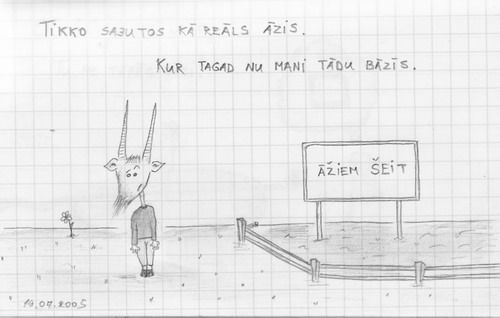 TIKKO SAJUTOS KĀ REĀLS ĀZIS.
KUR TAGAD NU MANI TĀDU BĀZĪS.
ĀŽIEM ŠEIT
19.07.2005